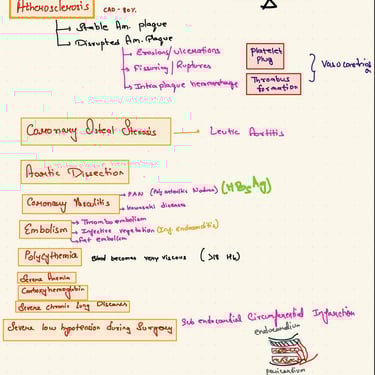 Atherosclerosis CAD - 80%
Stable Am. plaque
Disrupted Am. Plaque
Erosions/ulcerations
Fissuring/Ruptures
Intraplaque hemorrhage
Platelet
Plug
Thrombus
formation
Coronary Osteal Stenosis
Leutic Aortitis
Aortic Dissection
Coronary Arteritis
PAN (Polyarteritis Nodosa) (HBsAg)
Kawasaki disease
Embolism
Thromboembolism
Infective vegetation (Inf. endocarditis)
Fat embolism
Polycythemia Blood becomes very viscous (>18 Hb)
Severe Anemia
Carboxyhemoglobin
Severe Chronic Lung Diseases
Severe low hypotension during Surgery
Sub endocardial Circumferential Infarction
endocardium
pericardium